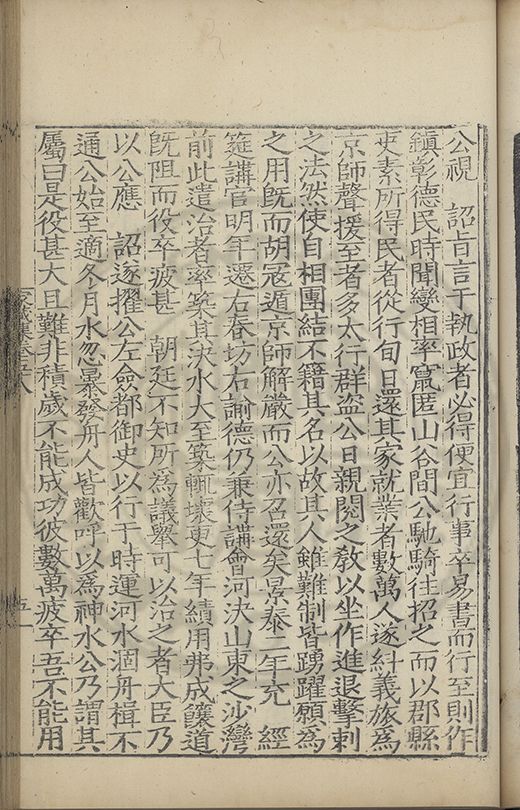 公視　詔旨言于執政者必得便宜行事卒易書而行至則作
鎮彰德民時聞變相率竄匿山谷間公馳騎往招之而以郡縣
吏素所得民者從行旬日還其家就業者數萬人遂糾義旅為
京師聲援至者多太行群盜公日親閱之教以坐作進退擊刺
之法然使自相團結不籍其名以故其人雖難制皆踴躍願為
之用既而胡寇遁京師解嚴而公亦召還矣景泰二年充　經
筵講官明年遷右春坊右諭德仍兼侍講會河決山東之沙灣
前此遣治者率築其決水大至築輒壞更七年績用弗成饟道
既阻而役卒疲甚　朝廷不知所為議舉可以治之者大臣乃
以公應　詔遂擢公左僉都御史以行于時運河水涸舟楫不
通公始至適冬月水忽暴發舟人皆歡呼以為神水公乃謂其
屬曰是役甚大且難非積歲不能成功彼數萬疲卒吾不能用
家藏集卷五十八
五